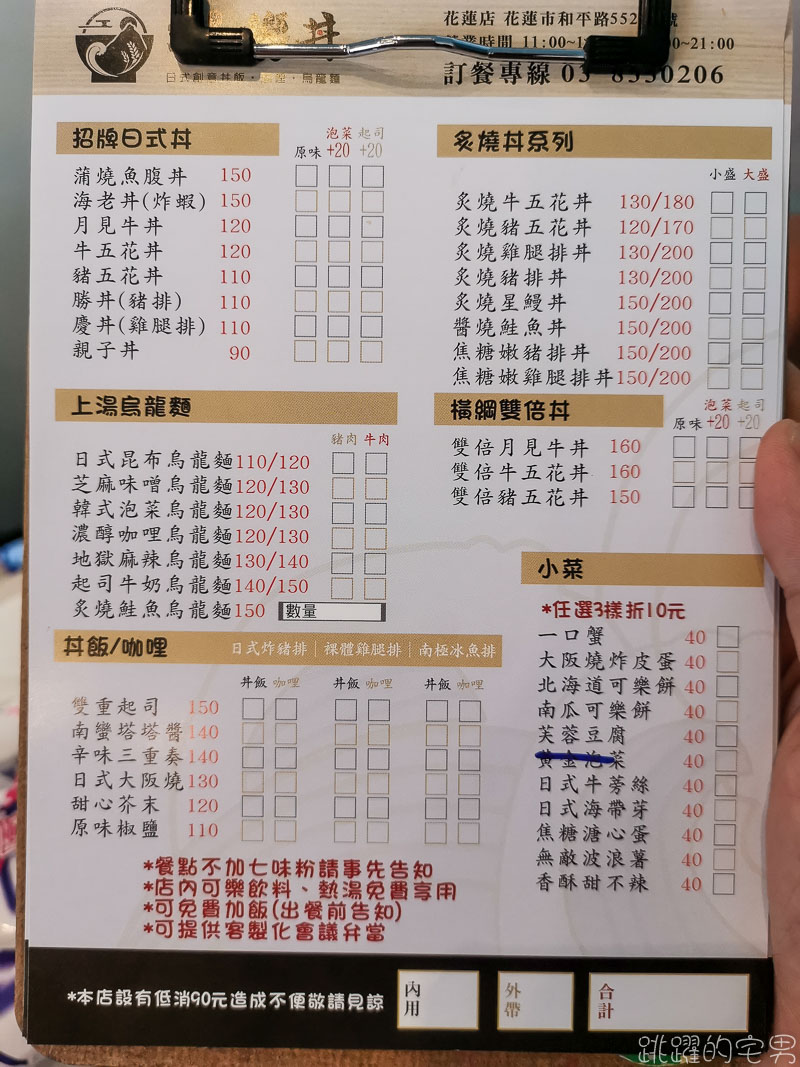 丼
花蓮店 花蓮市和平路552號
營業時間 11:00~1 00~21:00
日式創意丼飯・ ・烏龍麵
訂餐專線 03-8330206
招牌日式丼
原味 泡菜+20 起司+20
蒲燒魚腹丼 150
海老丼(炸蝦) 150
月見牛丼 120
牛五花丼 120
豬五花丼 110
勝丼(豬排) 110
慶丼(雞腿排) 110
親子丼 90
炙燒丼系列
小盛 大盛
炙燒牛五花丼 130/180
炙燒豬五花丼 120/170
炙燒雞腿排丼 130/200
炙燒豬排丼 130/200
炙燒星鰻丼 150/200
醬燒鮭魚丼 150/200
焦糖嫩豬排丼 150/200
焦糖嫩雞腿排丼 150/200
上湯烏龍麵
豬肉 牛肉
日式昆布烏龍麵 110/120
芝麻味噌烏龍麵 120/130
韓式泡菜烏龍麵 120/130
濃醇咖哩烏龍麵 120/130
地獄麻辣烏龍麵 130/140
起司牛奶烏龍麵 140/150
炙燒鮭魚烏龍麵 150 數量
橫綱雙倍丼
原味 泡菜+20 起司+20
雙倍月見牛丼 160
雙倍牛五花丼 160
雙倍豬五花丼 150
丼飯/咖哩 日式炸豬排|裸體雞腿排|南極冰魚排
丼飯 咖哩 丼飯 咖哩 丼飯 咖哩
雙重起司 150
南蠻塔塔醬 140
辛味三重奏 140
日式大阪燒 130
甜心芥末 120
原味椒鹽 110
小菜
*任選3樣折10元
一口蟹 40
大阪燒炸皮蛋 40
北海道可樂餅 40
南瓜可樂餅 40
芙蓉豆腐 40
黃金泡菜 40
日式牛蒡絲 40
日式海帶芽 40
焦糖溏心蛋 40
無敵波浪薯 40
香酥甜不辣 40
*餐點不加七味粉請事先告知
*店內可樂飲料、熱湯免費享用
*可免費加飯(出餐前告知)
*可提供客製化會議弁當
*本店設有低消90元造成不便敬請見諒
內用
外帶
合計
跳躍的宅男